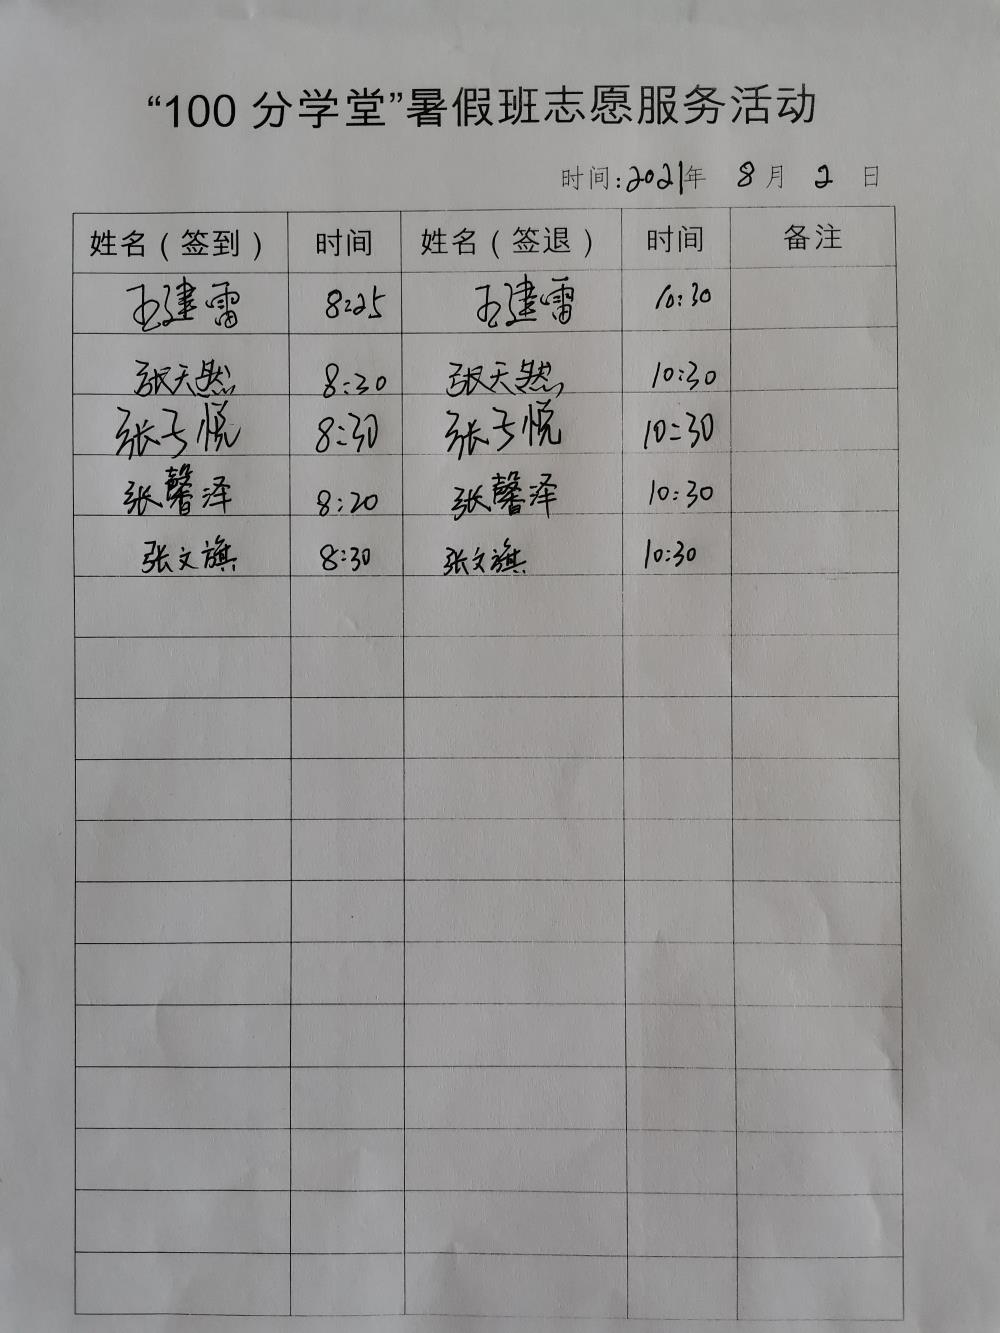 “100 分学堂”暑假班志愿服务活动
时间:2021年 8月 2 日
姓名（签到） 时间 姓名（签退） 时间 备注
王建雷 8:25 王建雷 10:30
张天然 8:30 张天然 10:30
张子悦 8:30 张子悦 10:30
张馨泽 8:20 张馨泽 10:30
张文旗 8:30 张文旗 10:30